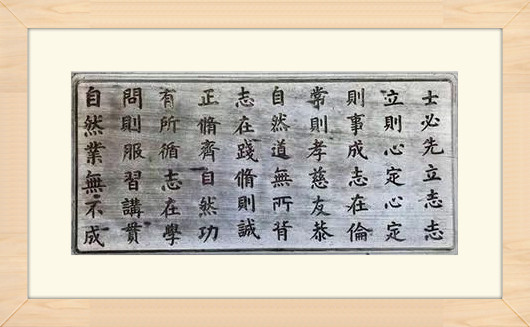 士必先立志志
立則心定心定
則事成志在倫
常則孝慈友恭
自然道無所背
志在踐脩則誠
正脩齊自然功
有所循志在學
問則服習講貫
自然業無不成